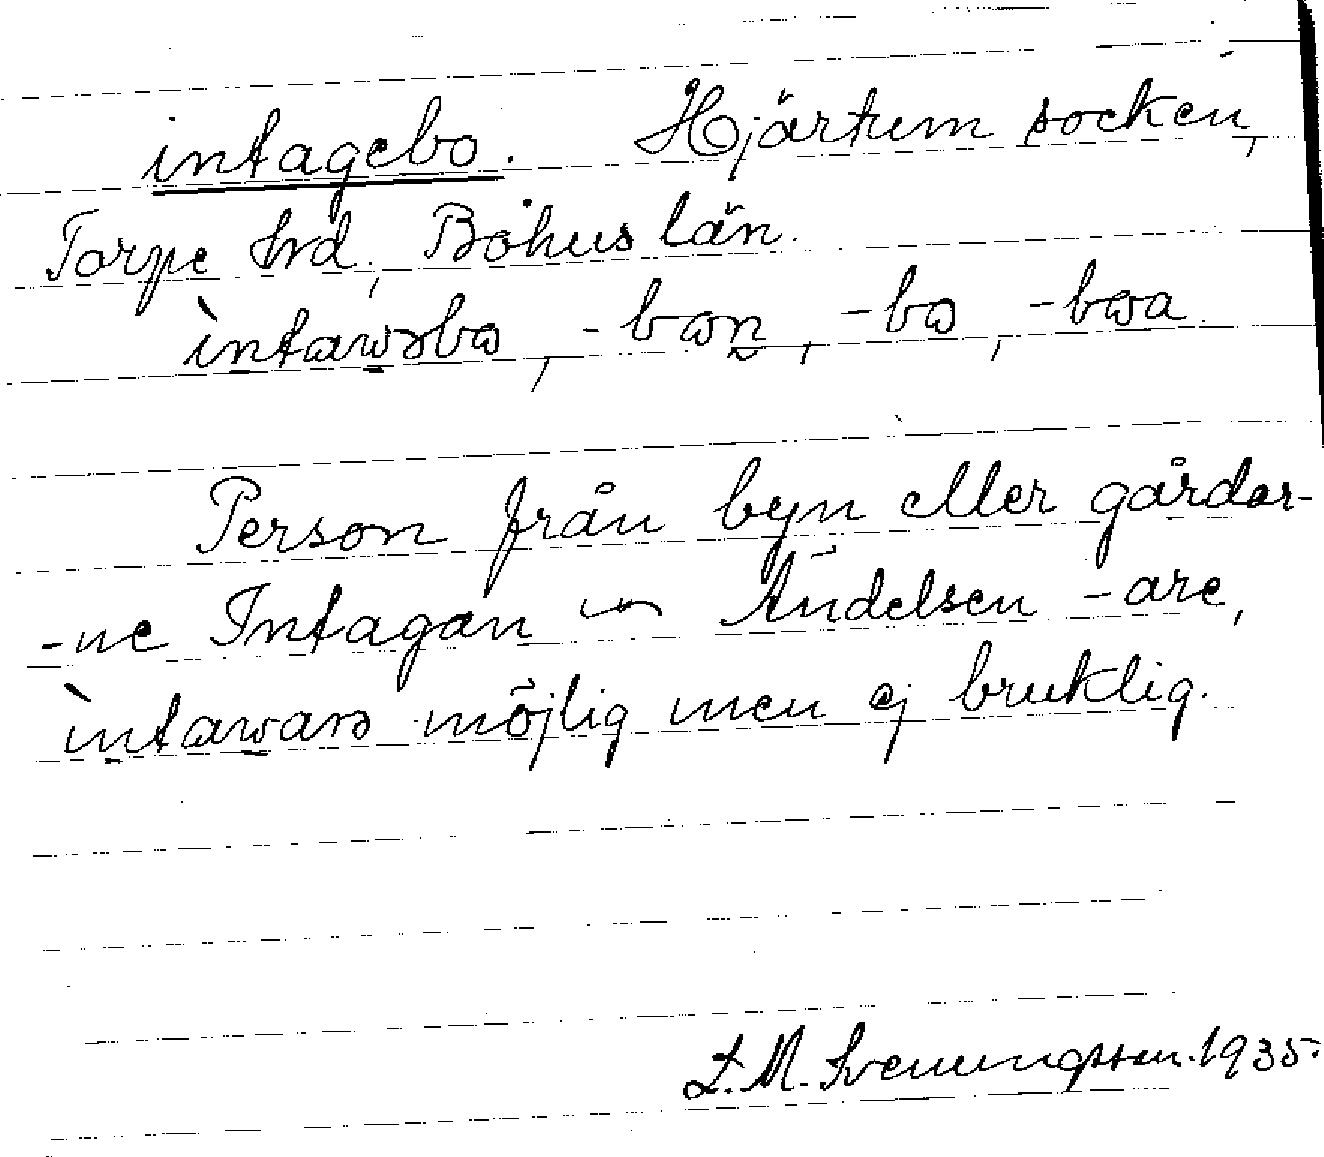 intagebo. Hjärtum socken,
Torpe hrd, Bohus län.
ìntawəbω, -bωn, -bω, -bωa.
Person från byn eller gårdar-
-ne Intagan ~ Ändelsen -are,
ìntawarə möjlig men ej bruklig.
L. M. Svenungsson. 1935.